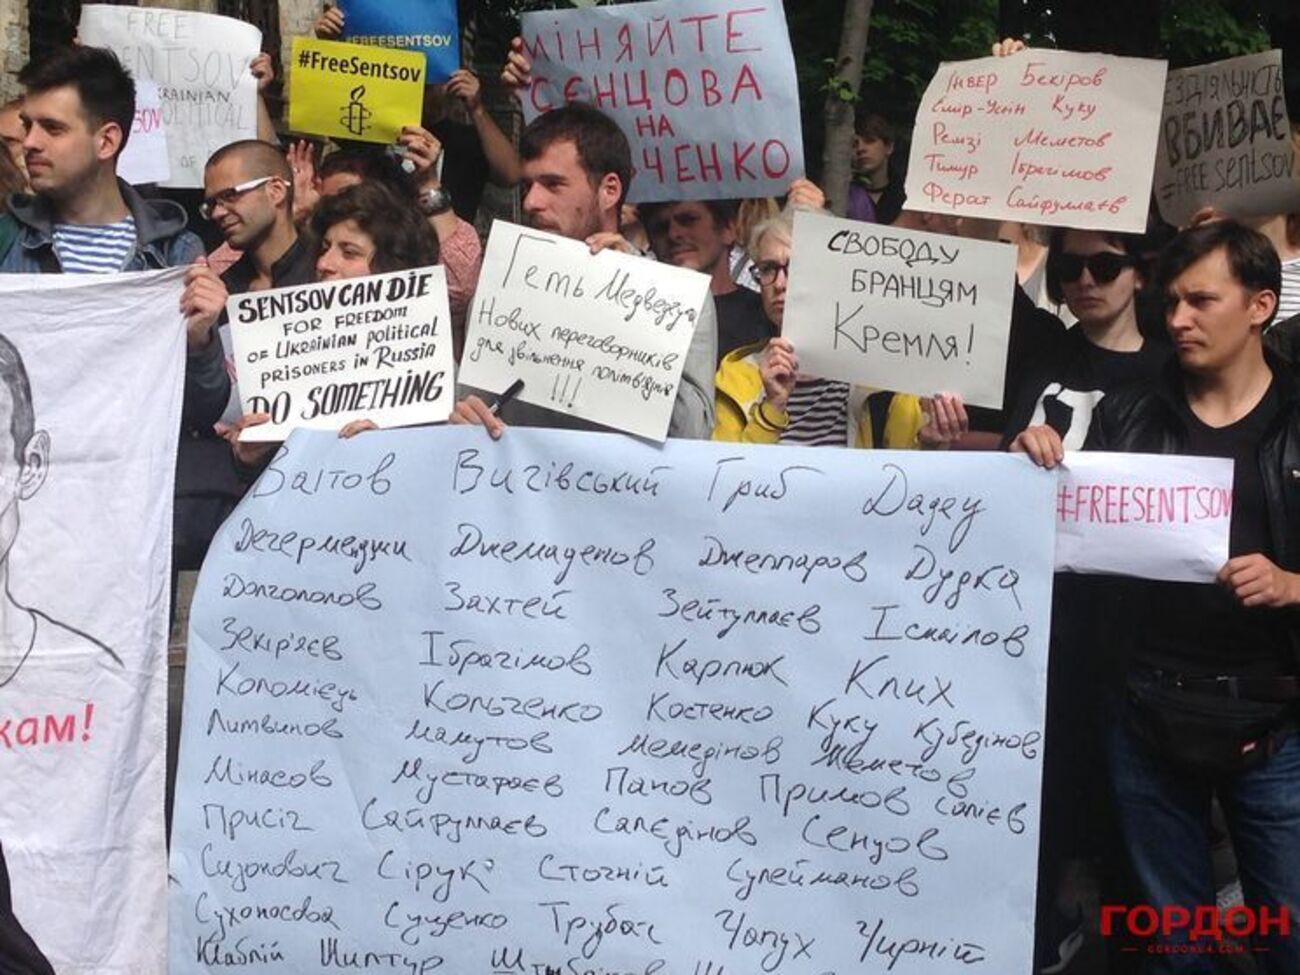 FREE
SENTSOV
UKRAINIAN
POLITICAL
#FREESENTSOV
#FreeSentsov
МІНЯЙТЕ
СЄНЦОВА
НА
ЧЕНКО
Інвер Бекіров
Емір-Усеїн Куку
Ремзі Меметов
Тимур Ібрагімов
Ферат Сайфуллаєв
ВБИВАЄ
#FREE Sentsov
SENTSOV CAN DIE
FOR FREEDOM
OF UKRAINIAN POLITICAL
PRISONERS IN RUSSIA
DO SOMETHING
Геть Медведчука
Нових переговорників
для звільнення політв'язнів
!!!
СВОБОДУ
БРАНЦЯМ
Кремля!
#FREESENTSOV
кам!
Ваітов Вигівський Гриб Дадеу
Дегерменджи Джемаденов Джеппаров Дудка
Долгополов Захтей Зейтуллаєв Ісмаілов
Зекір'яєв Ібрагімов Карпюк Клих
Коломієць Кольченко Костенко Куку Кубедінов
Литвинов Мамутов Мемедінов Меметов
Мінасов Мустафаєв Панов Примов Салієв
Присіч Сайфуллаєв Салєдінов Сенцов
Сизонович Сірук Стогній Сулейманов
Сухоносова Сущенко Трубач Чапух Чирній
Шаблій Шиптур
ГОРДОН
GORDONUA.COM